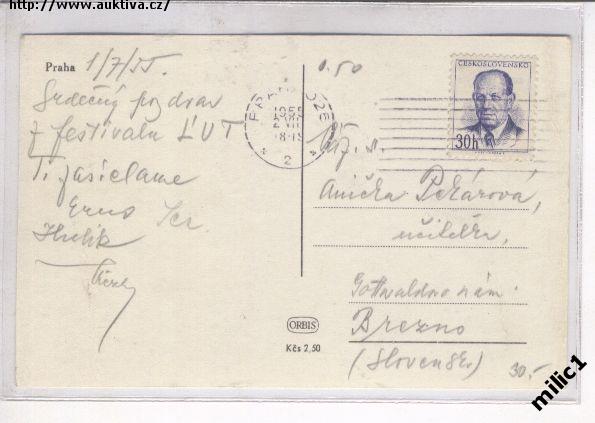 http://www.auktiva.cz/
Praha 1/7/55.
Srdečný pozdrav
z festivalu ĽUT
Ti zasielame
Hulík
0.50
ČESKOSLOVENSKO
30h
PRAHA 025
2
Anička Pekárová,
učiteľka,
Gottwaldovo nám.
Brezno
(Slovensko)
ORBIS
Kčs 2,50
30.-
milic1